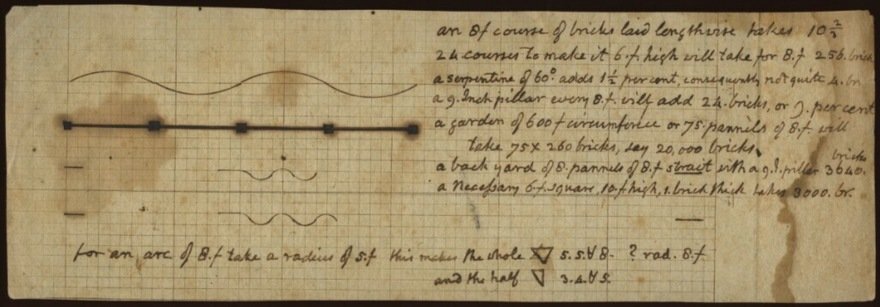 an 8.f course of bricks laid lengthwise takes 10 2/3
24 courses to make it 6.f high will take for 8.f 256. brick
a serpentine of 60° adds 1½ per cent, consequently not quite 4. br.
a 9. Inch pillar every 8.f will add 24. bricks, or 9. per cent
a garden of 600 f circumference or 75. pannels of 8.f. will
take 75 x 260 bricks, say 20,000 bricks
a back yard of 8. pannels of 8.f strait with a 9.I. pillar 3640. bricks
a Necessary 6.f. square, 10.f high, 1. brick thick takes 3000. br.
for an arc of 8.f take a radius of 5.f this makes the whole 5.5.8. ? rad. 8.f
and the half 3.4.5.